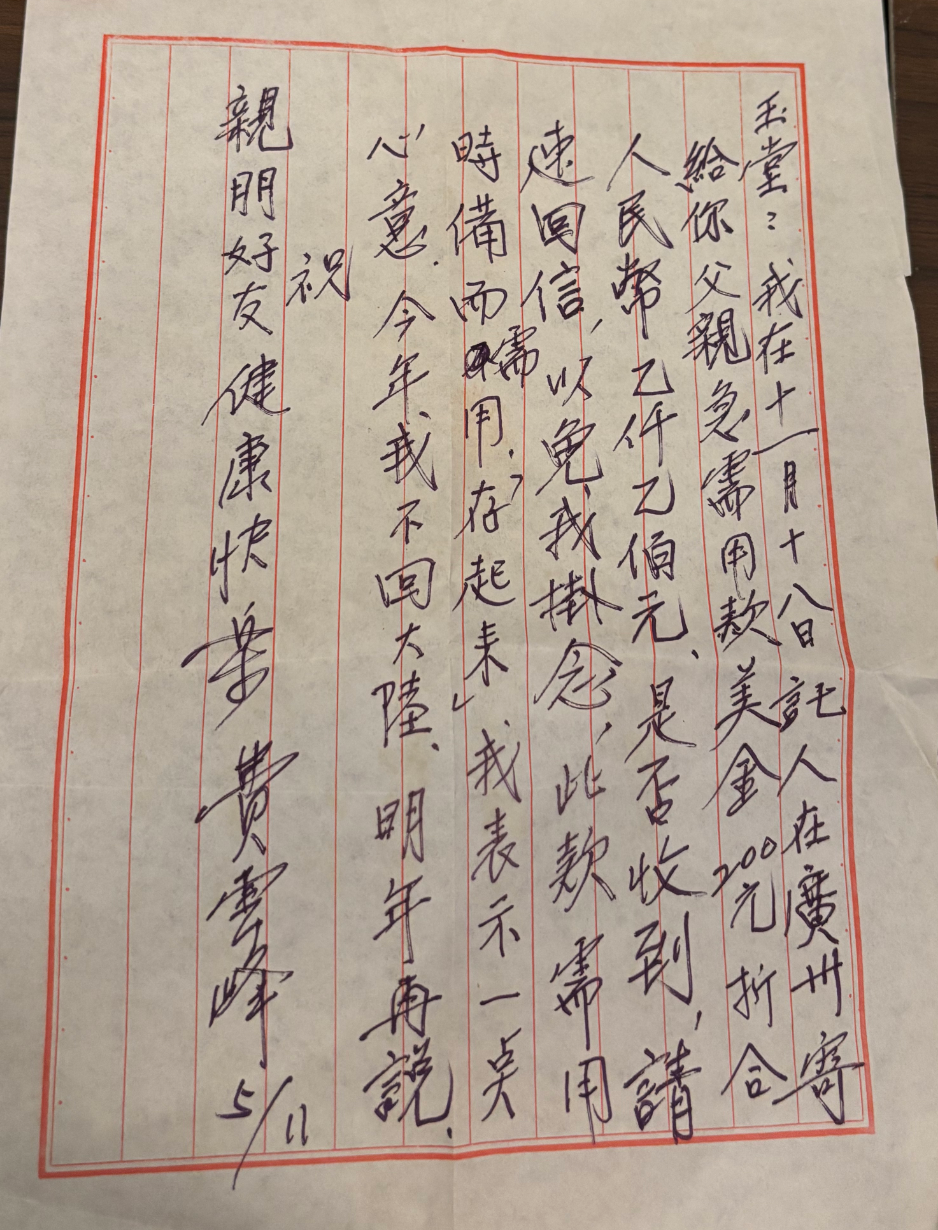 玉堂：我在十一月十八日託人在廣州寄
給你父親急需用款美金200元折合
人民幣乙仟乙佰元、是否收到，請
速回信，以免我掛念，此款需用
時備而需用．「存起来」我表示一点
心意．今年我不回大陸、明年再説．
祝
親朋好友健康快楽 費雲峰 5/11